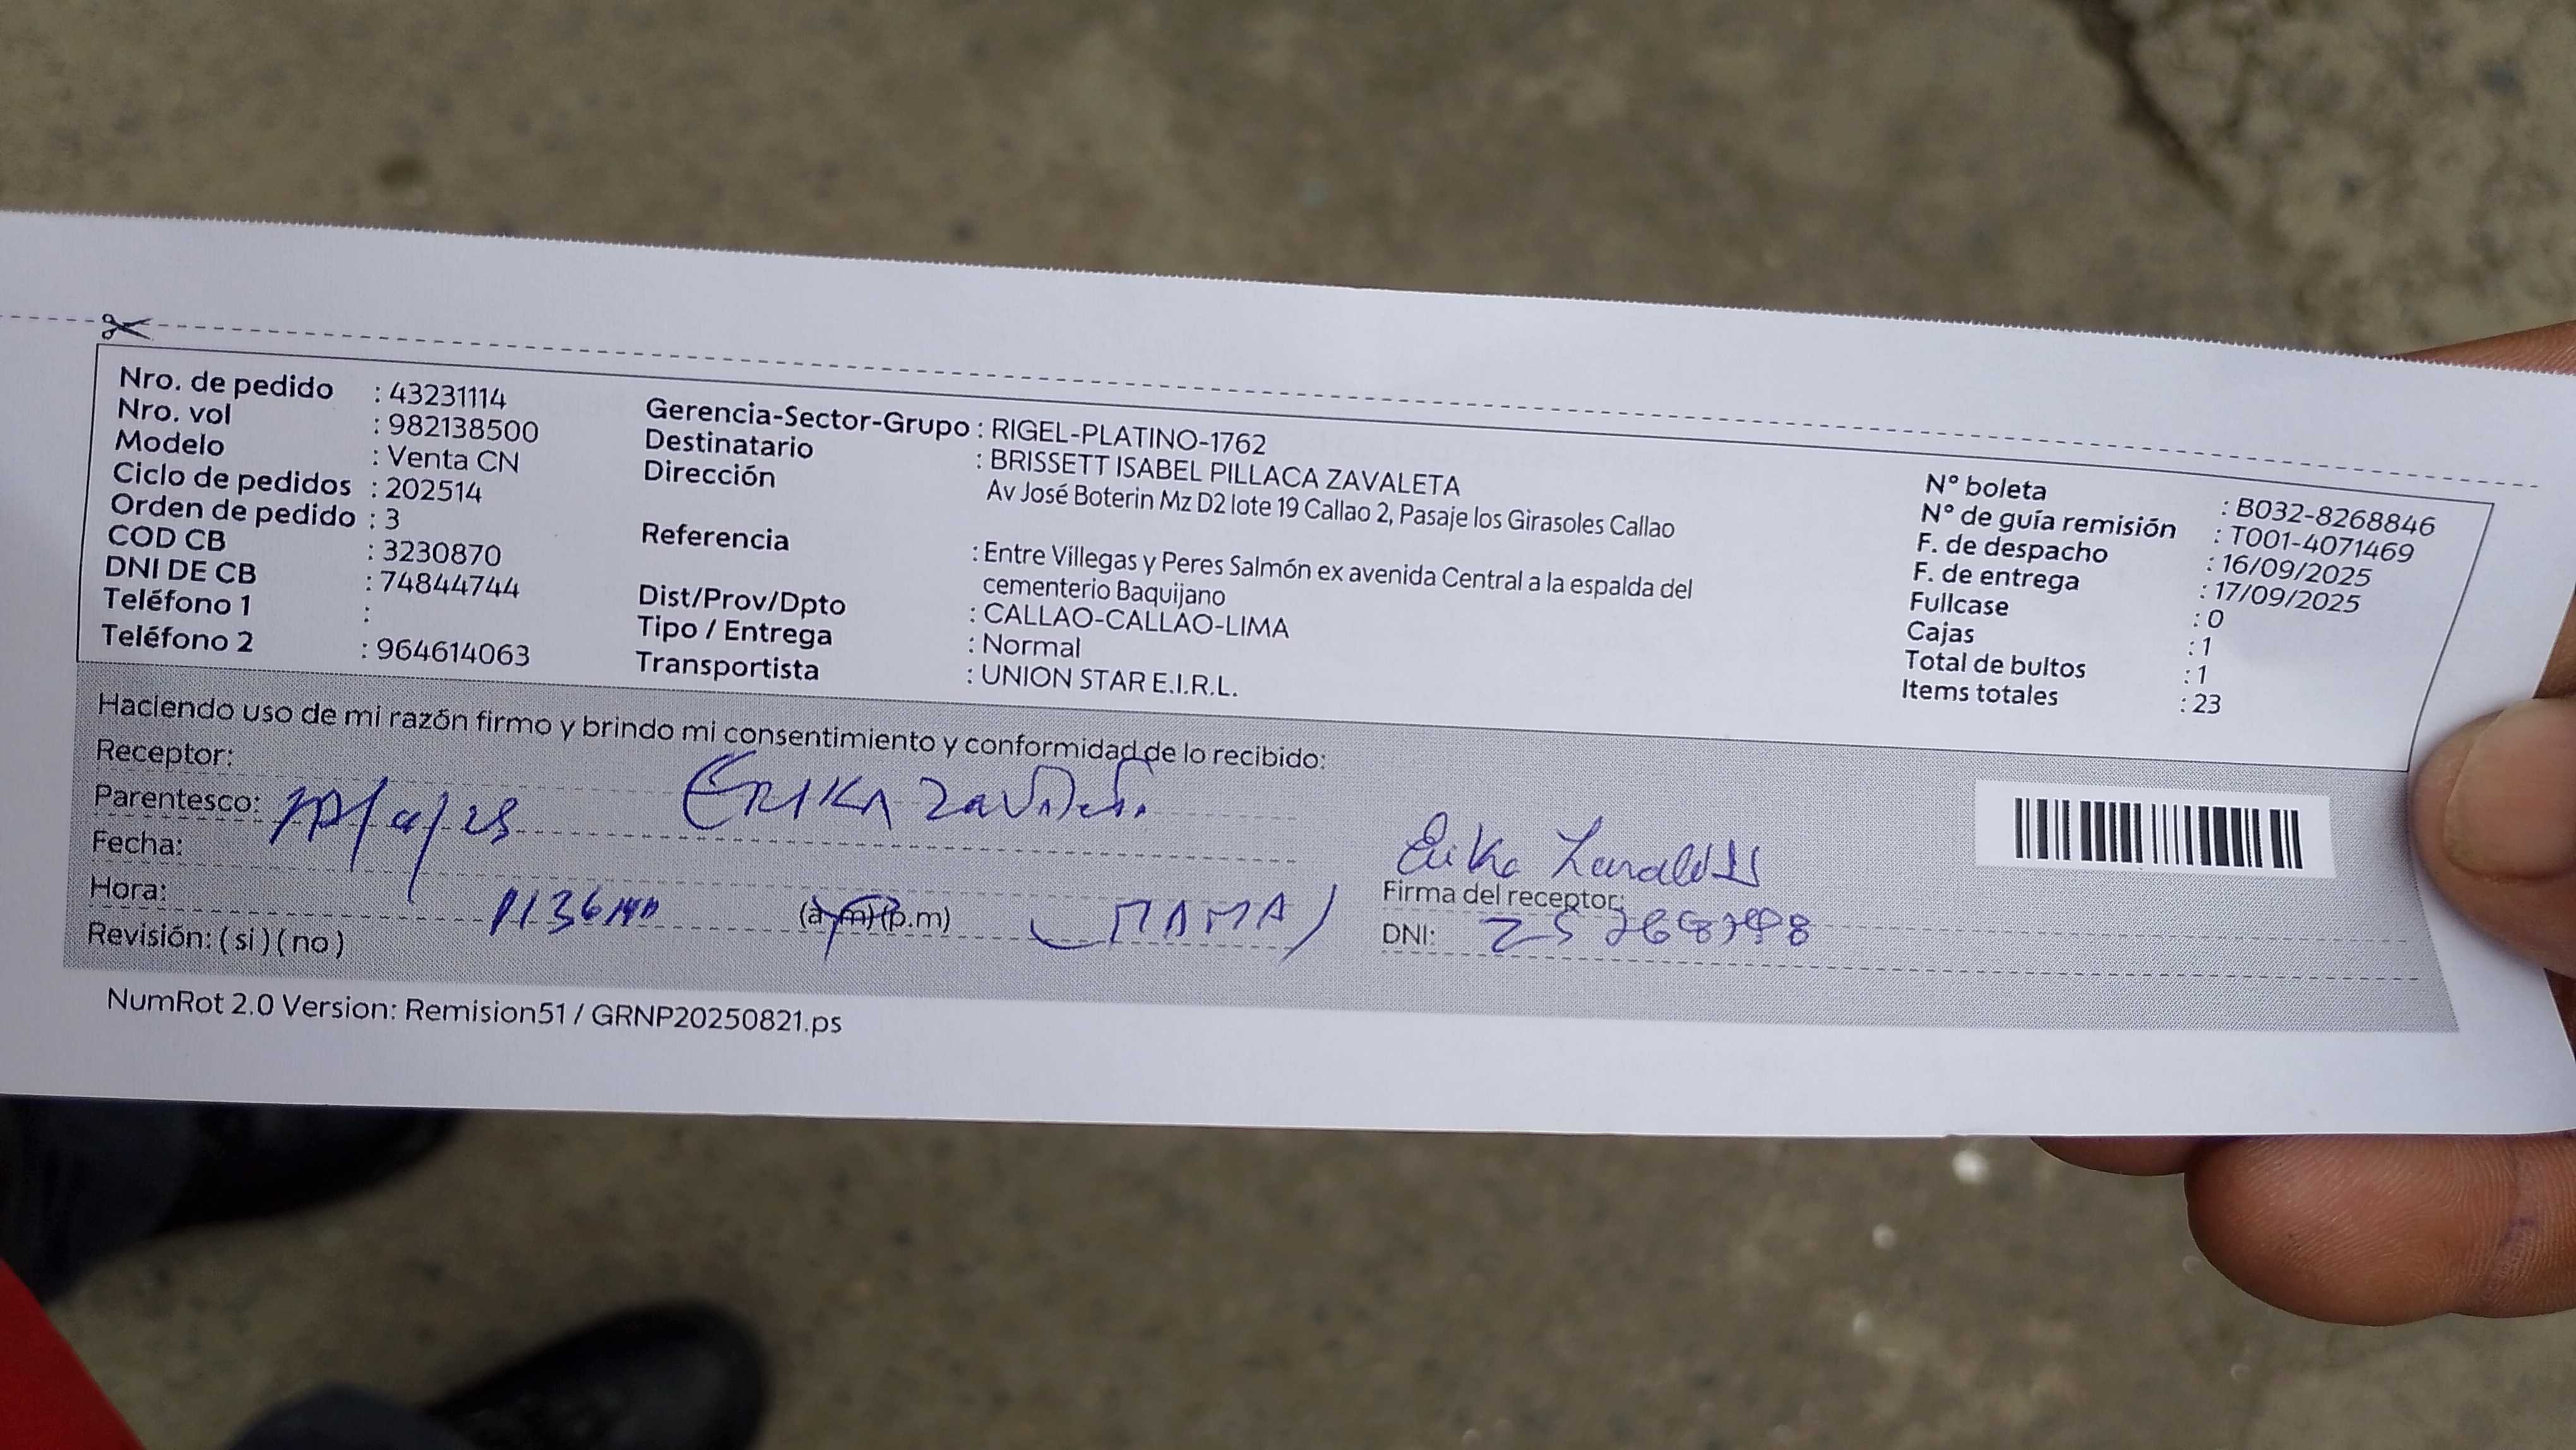 Nro. de pedido : 43231114
Nro. vol : 982138500
Modelo : Venta CN
Ciclo de pedidos : 202514
Orden de pedido : 3
COD CB : 3230870
DNI DE CB : 74844744
Teléfono 1 :
Teléfono 2 : 964614063
Gerencia-Sector-Grupo : RIGEL-PLATINO-1762
Destinatario : BRISSETT ISABEL PILLACA ZAVALETA
Dirección Av José Boterin Mz D2 lote 19 Callao 2, Pasaje los Girasoles Callao
Referencia : Entre Villegas y Peres Salmón ex avenida Central a la espalda del
cementerio Baquijano
Dist/Prov/Dpto : CALLAO-CALLAO-LIMA
Tipo / Entrega : Normal
Transportista : UNION STAR E.I.R.L.
N° boleta : B032-8268846
N° de guía remisión : T001-4071469
F. de despacho : 16/09/2025
F. de entrega : 17/09/2025
Fullcase : 0
Cajas : 1
Total de bultos : 1
Items totales : 23
Haciendo uso de mi razón firmo y brindo mi consentimiento y conformidad de lo recibido:
Receptor: ERIKA
Parentesco:
Fecha:
Hora: (a.m)(p.m) (MAMA)
Revisión: ( si ) ( no )
Firma del receptor:
DNI:
NumRot 2.0 Version: Remision51 / GRNP20250821.ps